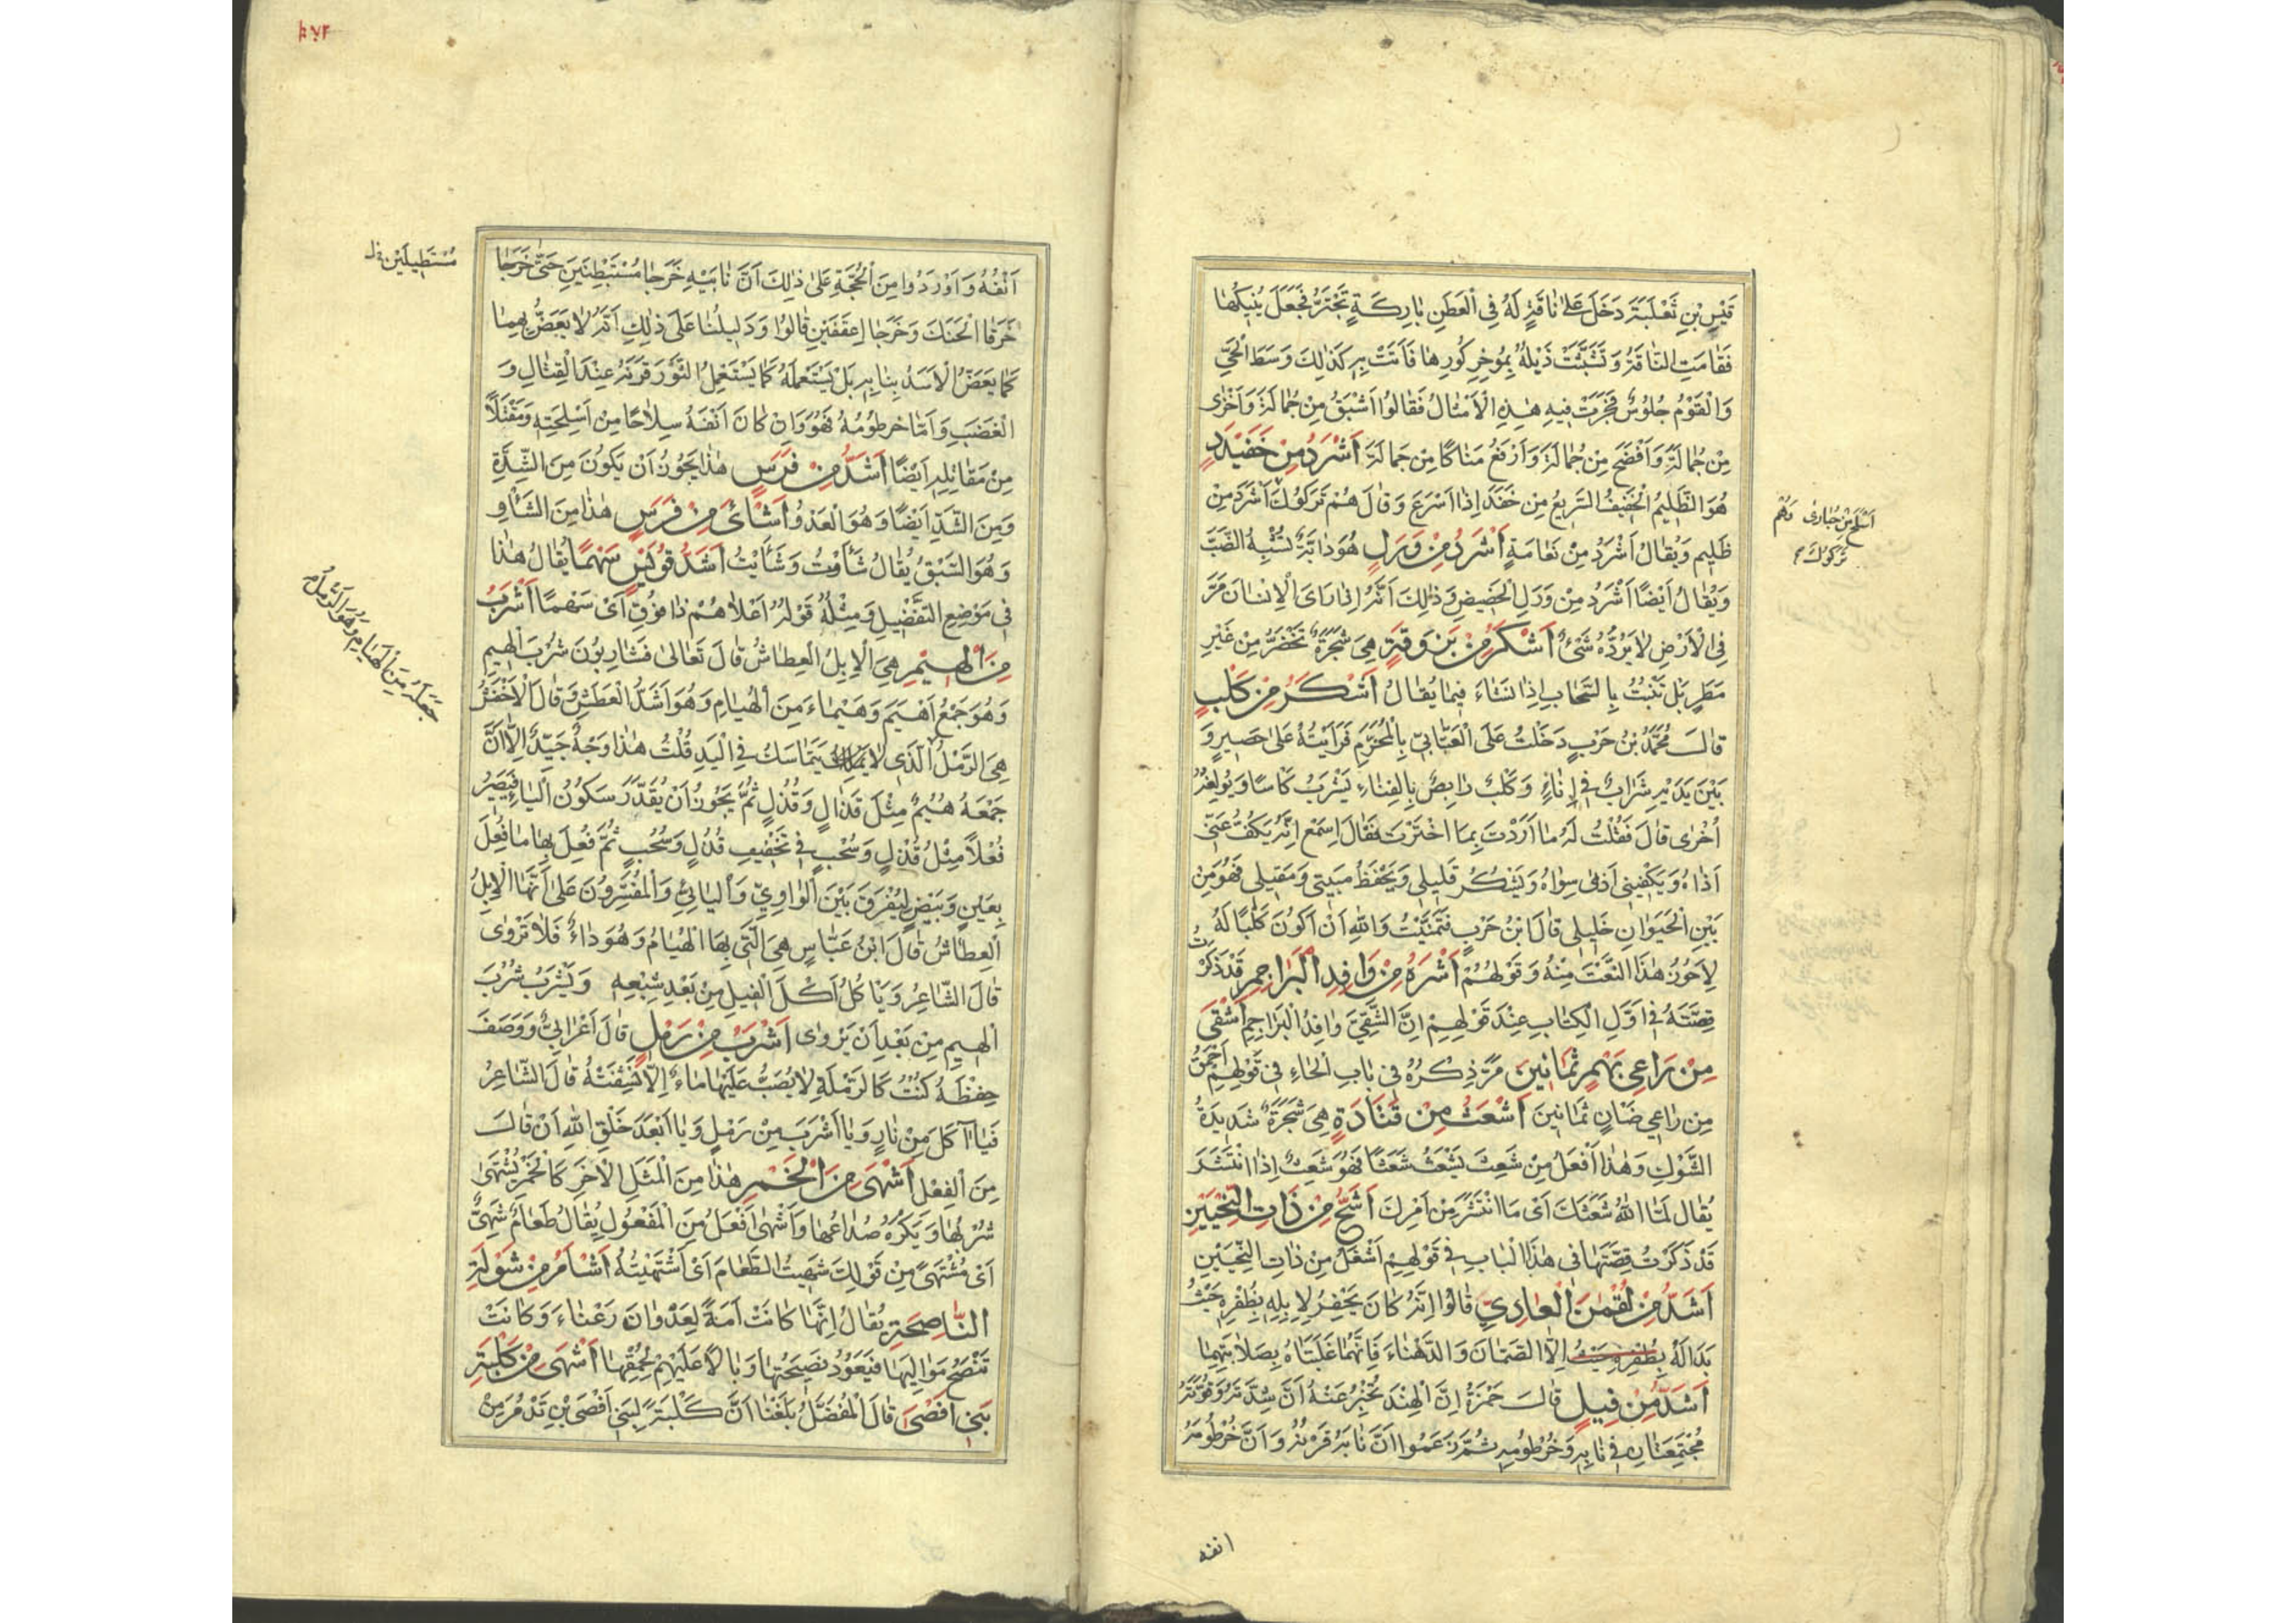 قَيْسِ بْنِ ثَعْلَبَةَ دَخَلَ عَلىٰ نَاقَةٍ لَهُ فِي الْعَطَنِ بَارِكَةٍ تَجْتَرُّ فَجَعَلَ يَنِيكُهَا
فَقَامَتِ النَّاقَةُ وَتَشَبَّثَتْ ذَيْلُهُ بِمُوخِرِ كُورِهَا فَأَتَتْ بِهِ كَذٰلِكَ وَسَطَ الْحَيِّ
وَالْقَوْمُ جُلُوسٌ فَجَرَتْ فِيهِ هٰذِهِ الْأَمْثَالُ فَقَالُوا أَشْبَقُ مِنْ جُمَالَةَ وَأَخْزٰى
مِنْ جُمَالَةَ وَأَفْضَحُ مِنْ جُمَالَةَ وَأَرْفَعُ مَنَاكًا مِنْ جُمَالَةَ أَشْرَدُ مِنْ خَفَيْدَدٍ
هُوَ الظَّلِيمُ الْخَفِيفُ السَّرِيعُ مِنْ خَفَدَ إِذَا أَسْرَعَ وَقَالَ هُمْ تَرَكُوكَ أَشْرَدَ مِنْ
ظَلِيمِ وَيُقَالُ أَشْرَدُ مِنْ نَعَامَةٍ أَشْرَدُ مِنْ وَرَلٍ هُوَ دَابَّةٌ تُشْبِهُ الضَّبَّ
وَيُقَالُ أَيْضًا أَشْرَدُ مِنْ وَرَلِ الْحَضِيضِ وَذٰلِكَ أَنَّهُ إِذَا رَاىَ الْإِنْسَانَ مَرَّ
فِي الْأَرْضِ لَا يَرُدُّهُ شَيْءٌ أَشْكَرُ مِنْ بَرْوَقَةٍ هِيَ شَجَرَةٌ تَخْضَرُّ مِنْ غَيْرِ
مَطَرٍ بَلْ تَنْبُتُ بِالسَّحَابِ إِذَا نَشَاءَ فِيمَا يُقَالُ أَشْكَرُ مِنْ كَلْبٍ
قَالَ مُحَمَّدُ بْنُ حَرْبٍ دَخَلْتُ عَلَى الْعَتَّابِيِّ بِالْمُخَرِّمِ فَرَأَيْتُهُ عَلىٰ حَصِيرٍ وَ
بَيْنَ يَدَيْهِ شَرَابٌ فِي إِنَاءٍ وَكَلْبٌ رَابِضٌ بِالْفِنَاءِ يَشْرَبُ كَأْسًا وَيُولِغُهُ
أُخْرٰى قَالَ فَقُلْتُ لَهُ مَا أَرَدْتَ بِمَا اخْتَرْتَ فَقَالَ اِسْمَعْ إِنَّهُ يَكُفُّ عَنِّي
أَذَاهُ وَيَكْفِينِي أَذٰى سِوَاهُ وَيَشْكُرُ قَلِيلِي وَيَحْفَظُ مَبِيتِي وَمَقِيلِي فَهُوَ مِنْ
بَيْنِ الْحَيَوَانِ خَلِيلِي قَالَ ابْنُ حَرْبٍ فَتَمَنَّيْتُ وَاللهِ أَنْ أَكُونَ كَلْبًا لَهُ
لِأَحُوزَ هٰذَا النَّعْتَ مِنْهُ وَقَوْلُهُمْ أَشْرَهُ مِنْ وَافِدِ الْبَرَاجِمِ قَدْ ذَكَرْتُ
قِصَّتَهُ فِي أَوَّلِ الْكِتَابِ عِنْدَ قَوْلِهِمْ إِنَّ الشَّقِيَّ وَافِدُ الْبَرَاجِمِ أَشْقَى
مِنْ رَاعِي بَهْمٍ ثَمَانِينَ مَرَّ ذِكْرُهُ فِي بَابِ الْحَاءِ فِي قَوْلِهِمْ أَحْمَقُ
مِنْ رَاعِي ضَانٍ ثَمَانِينَ أَشْعَثُ مِنْ قَتَادَةٍ هِيَ شَجَرَةٌ شَدِيدَةُ
الشَّوْكِ وَهٰذَا أَفْعَلُ مِنْ شَعِثَ يَشْعَثُ شَعَثًا فَهُوَ شَعِثٌ إِذَا انْتَشَرَ
يُقَالُ لَمَّ اللهُ شَعَثَكَ أَىْ مَا انْتَشَرَ مِنْ أَمْرِكَ أَشَحُّ مِنْ ذَاتِ النِّحْيَيْنِ
قَدْ ذَكَرْتُ قِصَّتَهَا فِي هٰذَا الْبَابِ فِي قَوْلِهِمْ أَشْغَلُ مِنْ ذَاتِ النِّحْيَيْنِ
أَشَدُّ مِنْ لُقْمٰنَ الْعَادِيِّ قَالُوا إِنَّهُ كَانَ يَحْفِرُ لِإِبِلِهِ بِظُفْرِهِ حَيْثُ
بَدَا لَهُ بِظُفْرِهِ حَيْثُ إِلَّا الصَّمَّانَ وَالدَّهْنَاءَ فَإِنَّهُمَا غَلَبَتَاهُ بِصَلَابَتِهِمَا
أَشَدُّ مِنْ فِيلٍ قَالَ حَمْزَةُ إِنَّ الْهِنْدَ تُخْبِرُ عَنْهُ أَنَّ شِدَّتَهُ وَقُوَّتَهُ
مُجْتَمِعَتَانِ فِي نَابِهِ وَخُرْطُومِهِ ثُمَّ زَعَمُوا أَنَّ نَابَهُ قَرْنُهُ وَأَنَّ خُرْطُومَهُ
أَسْلَحُ مِنْ حُبَارى وَهُمْ
تَرَكُوكَ
انفه
٢٧٢
أَنْفُهُ وَأَوْرَدُوا مِنَ الْحُجَّةِ عَلىٰ ذٰلِكَ أَنَّ نَابَيْهِ خَرَجَا مُسْتَبْطِنَيْنِ حَتّٰى خَرَجَا
خَرَقَا الْحَنَكَ وَخَرَجَا أَعْقَفَيْنِ قَالُوا وَدَلِيلُنَا عَلىٰ ذٰلِكَ أَنَّهُ لَا يَعَضُّ بِهِمَا
كَمَا يَعَضُّ الْأَسَدُ بِنَابِهِ بَلْ يَسْتَعْمِلُهُ كَمَا يَسْتَعْمِلُ الثَّوْرُ قَرْنَهُ عِنْدَ الْقِتَالِ وَ
الْغَضَبِ وَأَمَّا خُرْطُومُهُ فَهُوَ وَإِنْ كَانَ أَنْفَهُ سِلَاحًا مِنْ أَسْلِحَتِهِ وَمَقْتَلًا
مِنْ مَقَاتِلِهِ أَيْضًا أَشَدُّ مِنْ فَرَسٍ هٰذَا يَجُوزُ أَنْ يَكُونَ مِنَ الشِّدَّةِ
وَمِنَ الشَّدِّ أَيْضًا وَهُوَ الْعَدْوُ أَشْأَىٰ مِنْ فَرَسٍ هٰذَا مِنَ الشَّأْوِ
وَهُوَ السَّبْقُ يُقَالُ شَأَوْتُ وَشَأَيْتُ أَشَدُّ قُوَيْسٍ سَهْمًا يُقَالُ هٰذَا
فِي مَوْضِعِ التَّفْضِيلِ وَمِثْلُهُ قَوْلُهُ أَعْلَاهُمْ ذَا فُوقٍ أَىْ سَهْمًا أَشْرَبُ
مِنَ الْهِيمِ هِيَ الْإِبِلُ الْعِطَاشُ قَالَ تَعَالىٰ فَشَارِبُونَ شُرْبَ الْهِيمِ
وَهُوَ جَمْعُ أَهْيَمَ وَهَيْمَاءَ مِنَ الْهُيَامِ وَهُوَ أَشَدُّ الْعَطَشِ وَقَالَ الْأَخْفَشُ
هِيَ الرَّمْلُ الَّذِي لَا يَتَمَاسَكُ فِي الْيَدِ قُلْتُ هٰذَا وَجْهٌ جَيِّدٌ إِلَّا أَنَّ
جَمْعَهُ هُيُمٌ مِثْلَ قَذَالٍ وَقُذُلٍ ثُمَّ يَجُوزُ أَنْ يُقَدَّرَ سُكُونُ الْيَاءِ فَيَصِيرُ
فُعْلًا مِثْلُ قُذْلٍ وَسُحْبٍ فِي تَخْفِيفِ قُذُلٍ وَسُحُبٍ ثُمَّ فُعِلَ بِهَا مَا فُعِلَ
بِعِينٍ وَبِيضٍ لِيُفْرَقَ بَيْنَ الْوَاوِيِّ وَالْيَائِيِّ وَالْمُفَسِّرُونَ عَلىٰ أَنَّهَا الْإِبِلُ
الْعِطَاشُ قَالَ ابْنُ عَبَّاسٍ هِيَ الَّتِي بِهَا الْهُيَامُ وَهُوَ دَاءٌ فَلَا تَرْوىٰ
قَالَ الشَّاعِرُ وَيَأْكُلُ أَكْلَ الْفِيلِ مِنْ بَعْدِ شِبْعِهِ وَيَشْرَبُ شُرْبَ
الْهِيمِ مِنْ بَعْدِ أَنْ يَرْوٰى أَشْرَبُ مِنْ رَمْلٍ قَالَ أَعْرَابِيٌّ وَوَصَفَ
حِفْظَهُ كُنْتُ كَالرَّمْلَةِ لَا يُصَبُّ عَلَيْهَا مَاءٌ إِلَّا نَشِفَتْهُ قَالَ الشَّاعِرُ
فَيَا آكَلَ مِنْ نَارٍ وَيَا أَشْرَبَ مِنْ رَمْلٍ وَيَا أَبْعَدَ خَلْقِ اللهِ أَنْ قَالَ
مِنَ الْفِعْلِ أَشْهَى مِنَ الْخَمْرِ هٰذَا مِنَ الْمَثَلِ الْآخَرِ كَالْخَمْرِ يُشْتَهىٰ
شُرْبُهَا وَيُكْرَهُ صُدَاعُهَا وَأَشْهىٰ أَفْعَلُ مِنَ الْمَفْعُولِ يُقَالُ طَعَامٌ شَهِيٌّ
أَىْ مُشْتَهىً مِنْ قَوْلِكَ شَهِيتُ الطَّعَامَ أَىْ اشْتَهَيْتُهُ أَشْأَمُ مِنْ شَوْلَةَ
النَّاصِحَةِ يُقَالُ إِنَّهَا كَانَتْ أَمَةً لِعَدْوَانَ رَعْنَاءَ وَكَانَتْ
تَنْصَحُ مَوَالِيَهَا فَيَعُودُ نَصِيحَتُهَا وَبَالًا عَلَيْهِمْ لِحُمْقِهَا أَشْهَى مِنْ كَلْبَةِ
بَنِي أَفْصَى قَالَ الْمُفَضَّلُ بَلَغَنَا أَنَّ كَلْبَةً لِبَنِي أَفْصَى بْنِ تَدْمُرَ مِنْ
مُسْتَطِيلَيْنِ
جَعَلَهُ مِنَ الْهَيَامِ وَهُوَ الرَّمْلُ